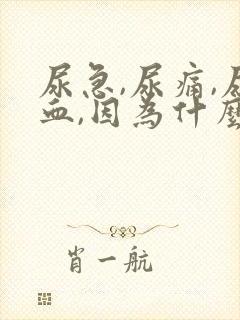 尿急,尿痛,尿
血,因為什麼
肖一航